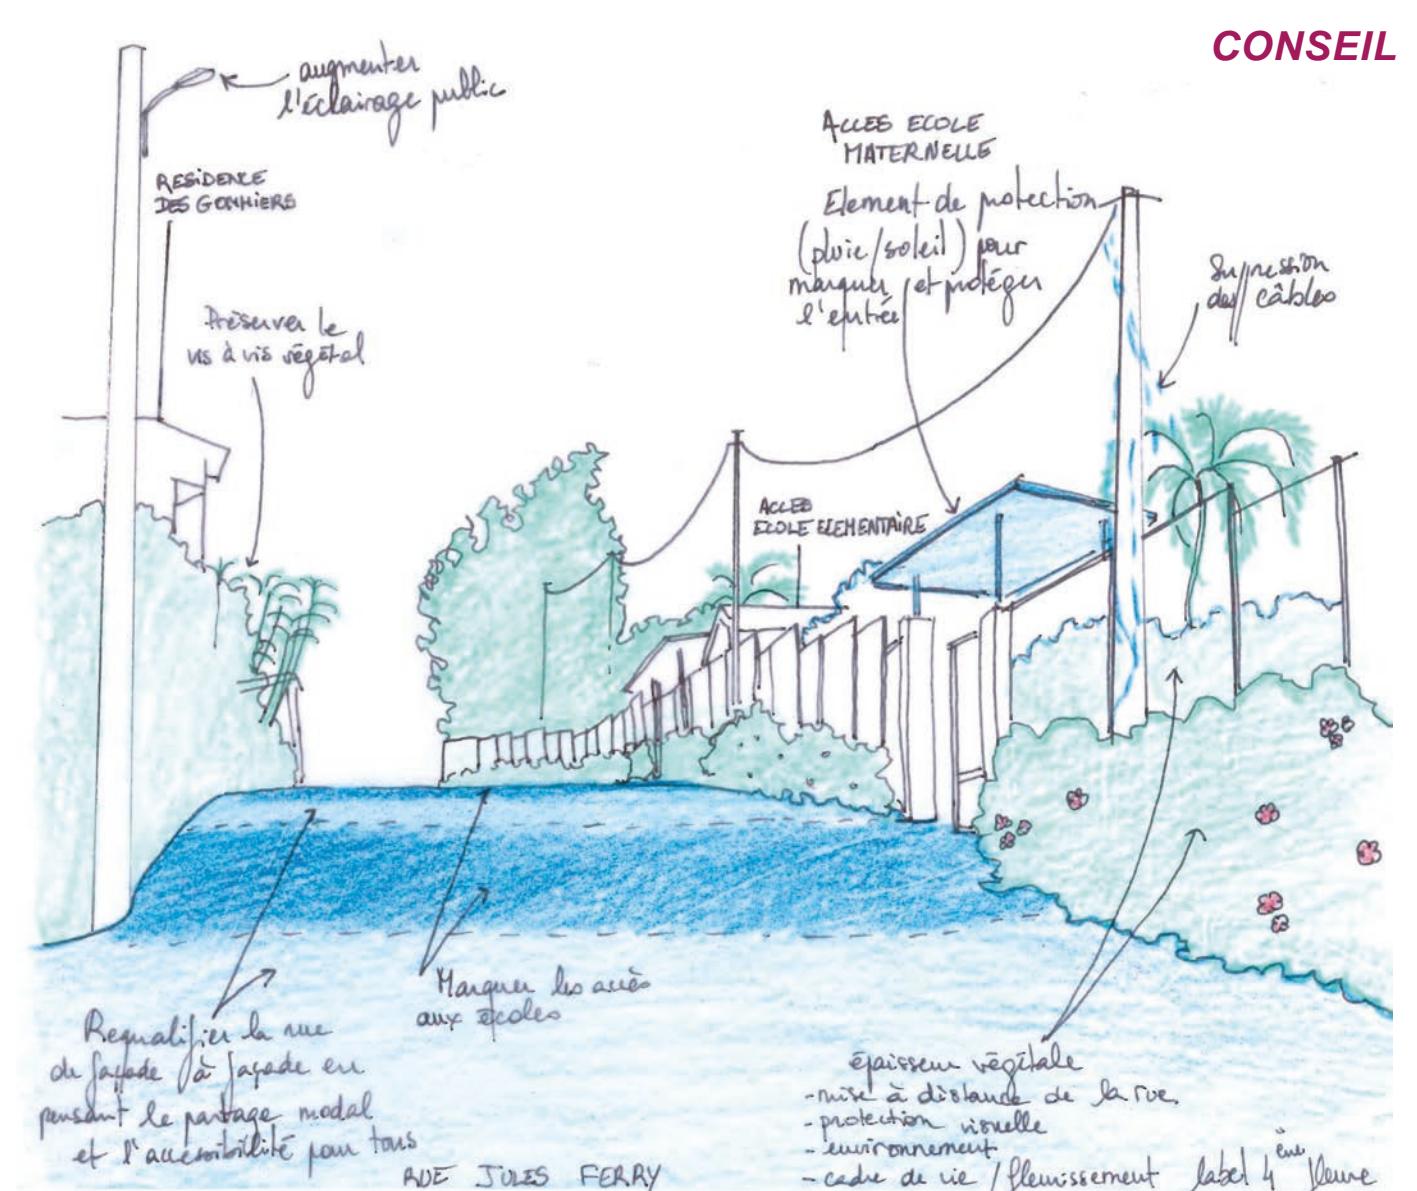 CONSEIL
augmenter
l'éclairage public
RESIDENCE
DES GOMMIERS
Préserver le
vis à vis végétal
ACCES ECOLE
MATERNELLE
Element de protection
(pluie/soleil) pour
marquer et protéger
l'entrée
Supression
des câbles
ACCES
ECOLE ELEMENTAIRE
Marquer les accès
aux écoles
Requalifier la rue
de façade à façade en
pensant le partage modal
et l'accessibilité pour tous
RUE JULES FERRY
épaisseur végétale
- mise à distance de la rue
- protection visuelle
- environnement
- cadre de vie / fleurissement label 4ème fleur